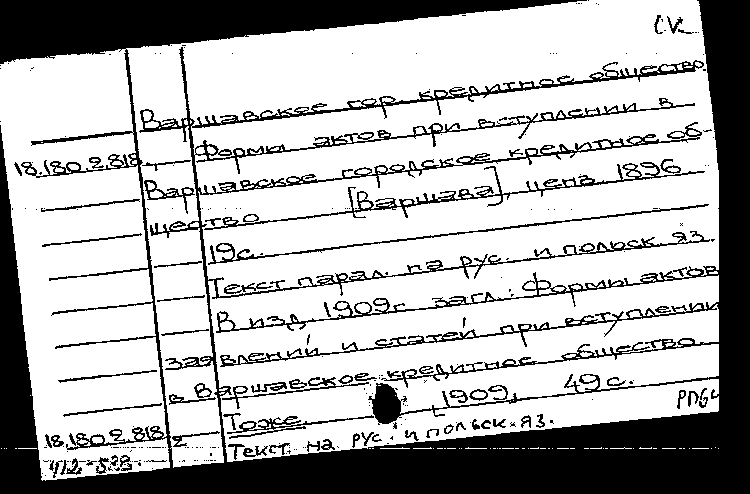 СК
Варшавское гор. кредитное общество.
18.180.2.818. Формы актов при вступлении в
Варшавское городское кредитное об-
щество [Варшава], ценз 1896
19с.
Текст парал. на рус. и польск. яз.
В изд. 1909г загл.: Формы актов
заявлений и статей при вступлении
в Варшавское кредитное общество.
Тоже. 1909, 49с.
18.180.2.818 2 Текст на рус. и польск. яз.